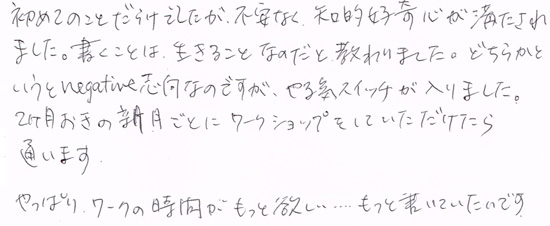 初めてのことだらけでしたが、不安なく、知的好奇心が満たされ
ました。書くことは、生きることなのだと教わりました。どちらかと
いうとnegative志向なのですが、やる気スイッチが入りました。
2ヶ月おきの新月ごとにワークショップをしていただけたら
通います.
やっぱり、ワークの時間がもっと欲しい……もっと書いていたいです